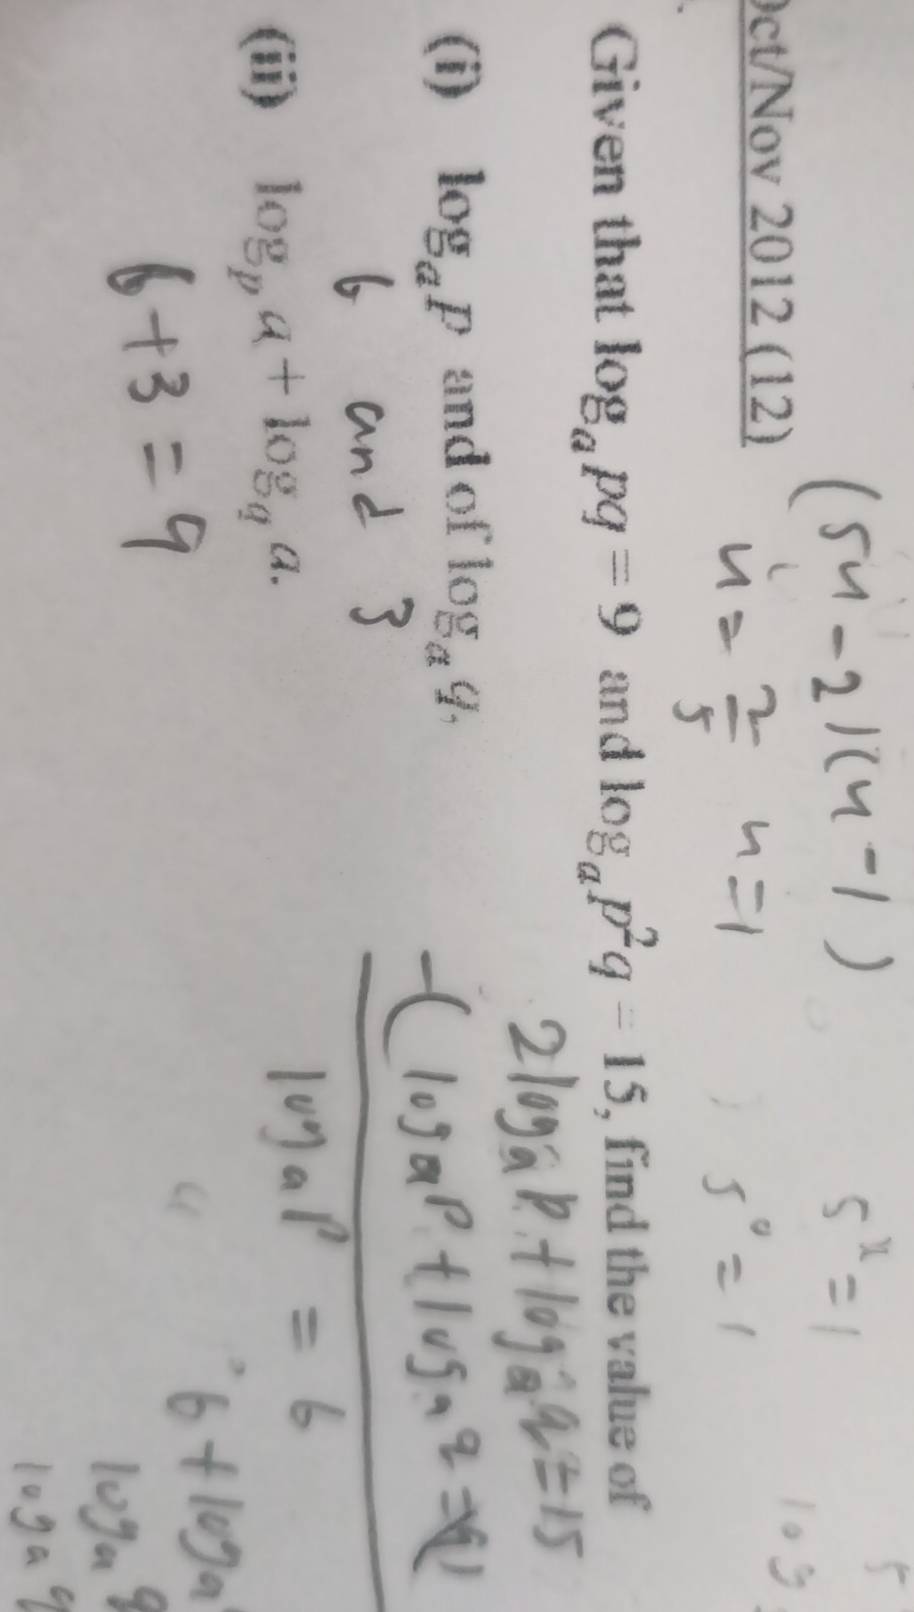 Oct/Nov 2012 (12)
(5u - 2)(u - 1)
u = 2/5 u = 1
5^x = 1
5^0 = 1
log
5
Given that log_a pq = 9 and log_a p²q = 15, find the value of
(i) log_a p and of log_a q,
6 and 3
(ii) log_p a + log_q a.
6 + 3 = 9
2 log_a p + log_a q = 15
-(log_a p + log_a q = 9)
log_a p = 6
6 + log_a
log_a q
log_a q